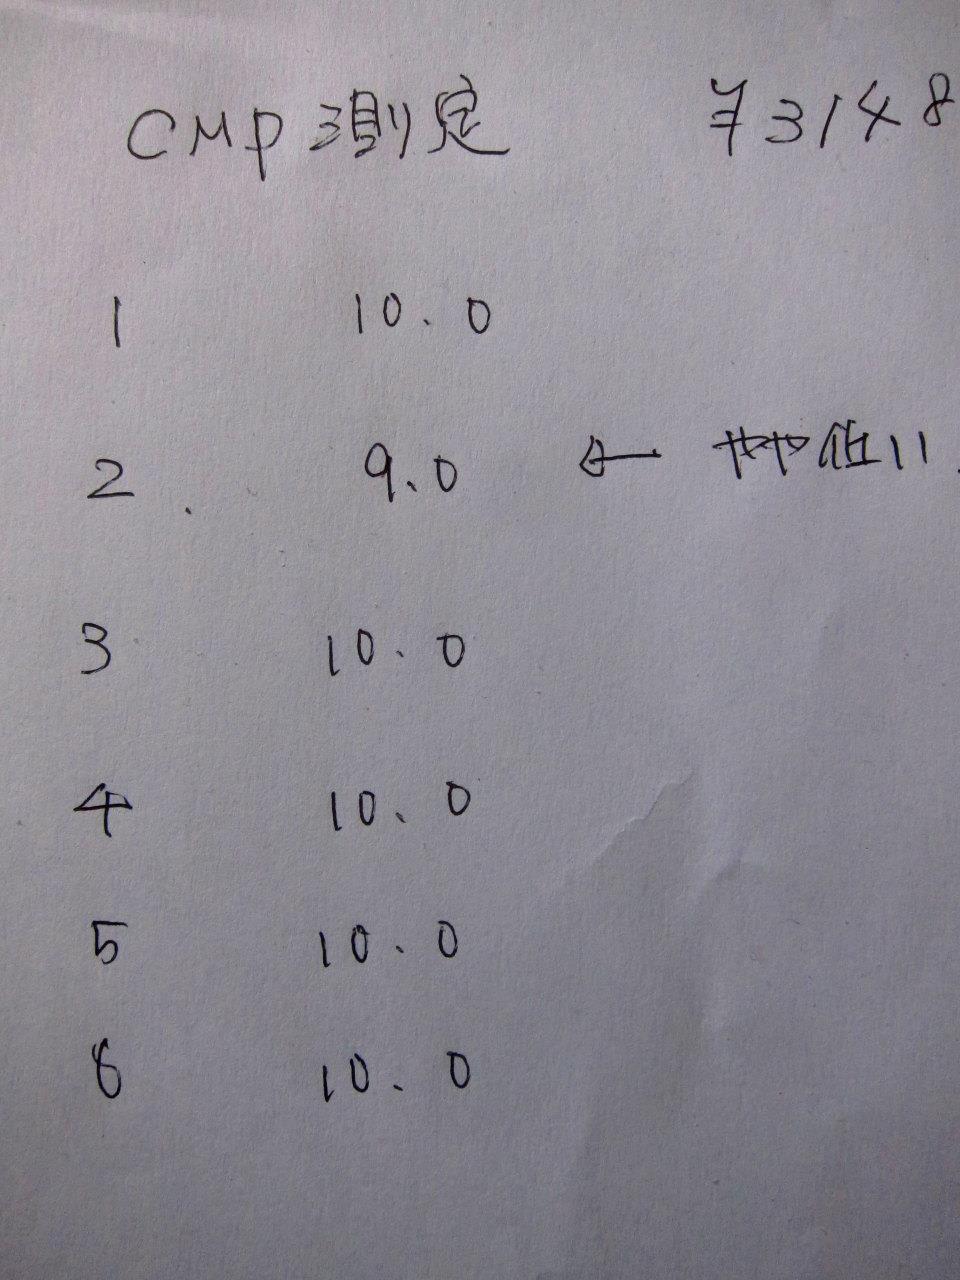 CMP 測定 ¥3148
1 10.0
2 9.0 ← やや低い.
3 10.0
4 10.0
5 10.0
6 10.0